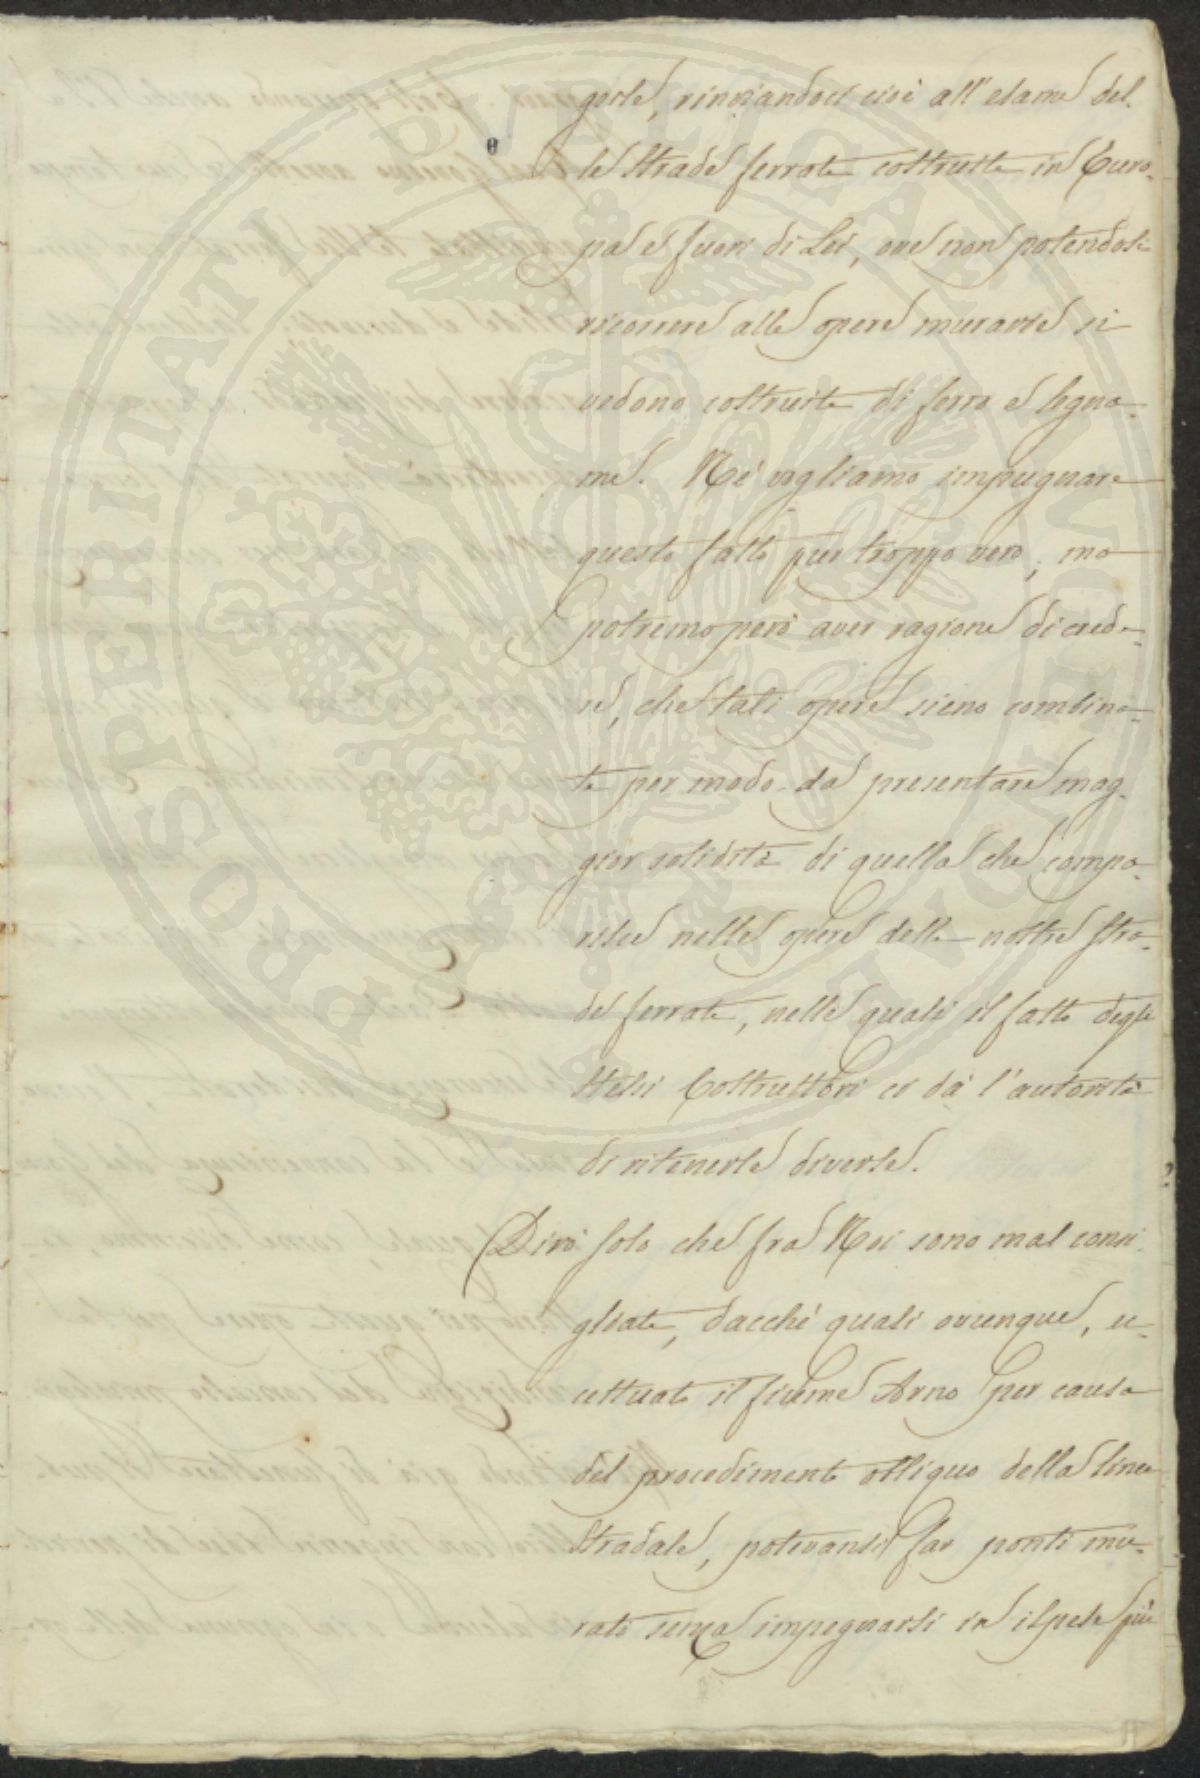 poste, rinviandoci cioè all'esame del
le Strade ferrate costruite in Euro-
pa e fuori di Lei, ove non potendosi
ricorrere alle opere murarie si
vedono costruite di ferro e legna-
me. Nè vogliamo impugnare
questo fatto pur troppo vero, ma
potremo però aver ragione di crede-
re, che tali opere sieno combina-
te per modo da presentare mag-
gior solidità di quella che compa-
risce nelle opere delle nostre stra-
de ferrate, nelle quali il fatto degli
stessi Costruttori ci dà l'autorità
di ritenerle diverse.
Dirò solo che fra Noi sono mal consi-
gliate, dacchè quasi ovunque, ec-
cettuato il fiume Arno per causa
del procedimento obliquo della linea
Stradale, potevansi far ponti mu-
rati senza impegnarsi in ispese più
PROSPERITATI PUBLICAE